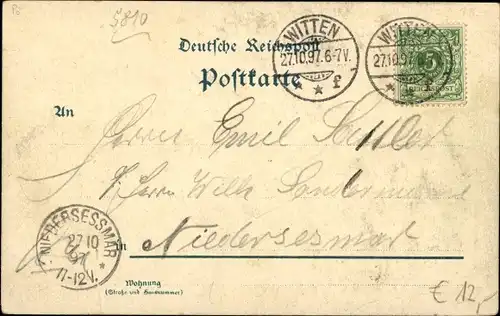 5810
WITTEN
27.10.97.6-7V.
f
WITTEN
27.10.97
REICHSPOST
Deutsche Reichspost
Postkarte
An
Herrn Emil
Herrn Wilh
in Niedersesmar
NIEDERSESSMAR
27 10
97
11-12V.
Wohnung
(Straße und Hausnummer)
€ 12,